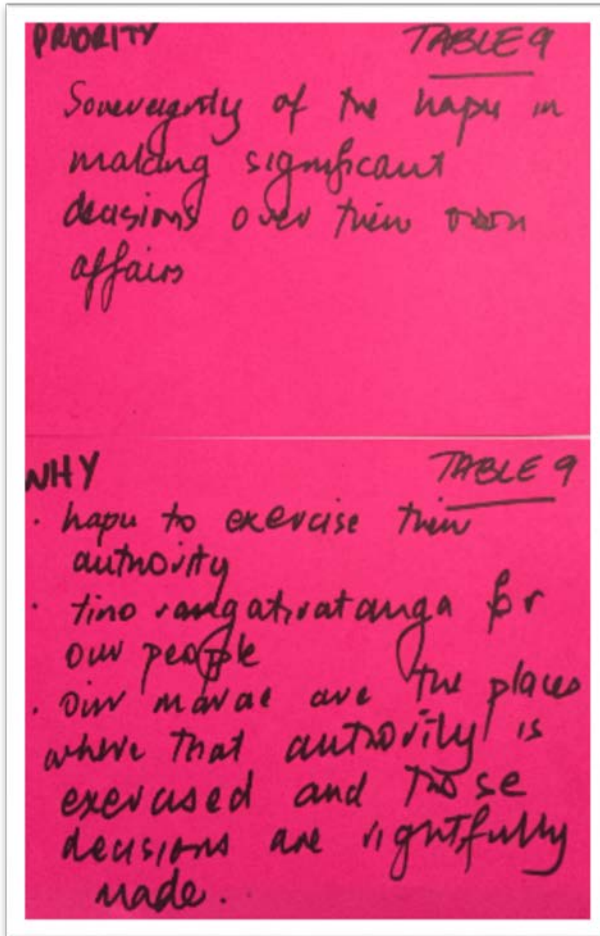 PRIORITY TABLE 9
Sovereignty of the hapu in
making significant
decisions over their own
affairs
WHY TABLE 9
· hapu to exercise their
authority
· tino rangatiratanga for
our people
· Our marae are the places
where that authority is
exercised and those
decisions are rightfully
made.